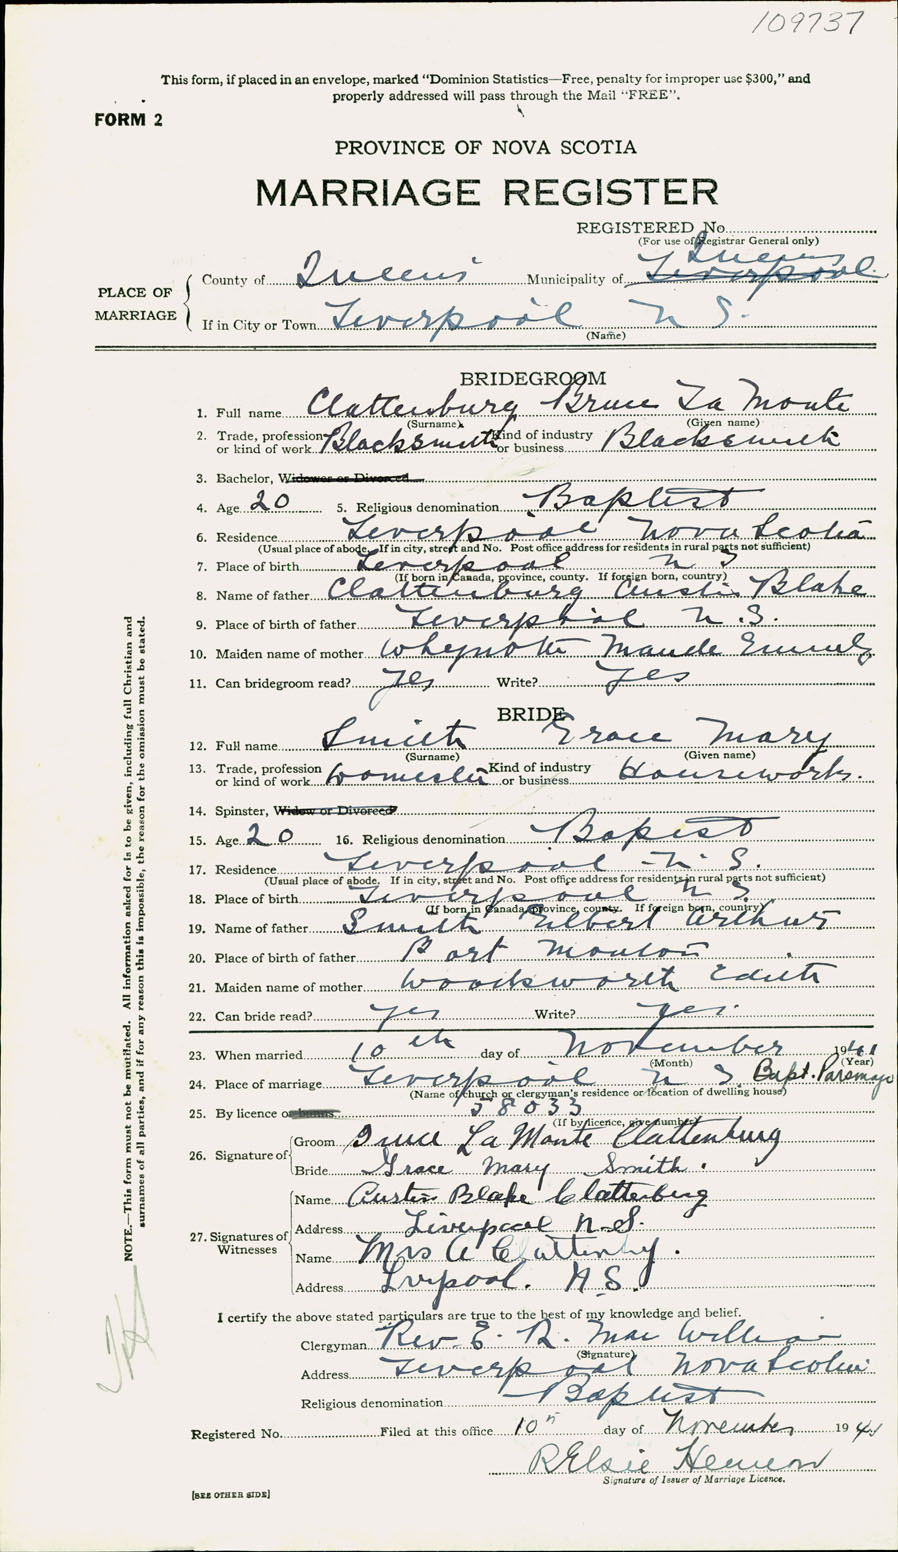 109737
This form, if placed in an envelope, marked “Dominion Statistics—Free, penalty for improper use $300,” and
properly addressed will pass through the Mail “FREE”.
FORM 2
PROVINCE OF NOVA SCOTIA
MARRIAGE REGISTER
REGISTERED No.
(For use of Registrar General only)
Queens
PLACE OF MARRIAGE
County of Queens Municipality of Liverpool
If in City or Town Liverpool N S.
(Name)
BRIDEGROOM
1. Full name Clattenburg Bruce La Monte
(Surname) (Given name)
2. Trade, profession or kind of work Blacksmith Kind of industry or business Blacksmith
3. Bachelor, Widower or Divorced
4. Age 20 5. Religious denomination Baptist
6. Residence Liverpool Nova Scotia
(Usual place of abode. If in city, street and No. Post office address for residents in rural parts not sufficient)
7. Place of birth Liverpool N S
(If born in Canada, province, county. If foreign born, country)
8. Name of father Clattenburg Austin Blake
9. Place of birth of father Liverpool N.S.
10. Maiden name of mother Whynott Maude Emmely
11. Can bridegroom read? Yes Write? Yes
BRIDE
12. Full name Smith Grace Mary
(Surname) (Given name)
13. Trade, profession or kind of work Domestic Kind of industry or business Housework.
14. Spinster, Widow or Divorced
15. Age 20 16. Religious denomination Baptist
17. Residence Liverpool N. S.
(Usual place of abode. If in city, street and No. Post office address for residents in rural parts not sufficient)
18. Place of birth Liverpool N S.
(If born in Canada, province, county. If foreign born, country)
19. Name of father Smith Gilbert Arthur
20. Place of birth of father Port Mouton
21. Maiden name of mother Woodsworth Edith
22. Can bride read? Yes Write? Yes.
23. When married 10th day of November 1941
(Month) (Year)
24. Place of marriage Liverpool N S. Bapt. Parsonage
(Name of church or clergyman's residence or location of dwelling house)
25. By licence or banns 58033
(If by licence, give number)
26. Signature of Groom Bruce La Monte Clattenburg
Bride Grace Mary Smith.
27. Signatures of Witnesses
Name Austin Blake Clattenberg
Address Liverpool N.S.
Name Mrs A Clattenbg.
Address Lvrpool. N.S.
I certify the above stated particulars are true to the best of my knowledge and belief.
Clergyman Rev. E. R. Mac William
(Signature)
Address Liverpool Nova Scotia
Religious denomination Baptist
Registered No. Filed at this office 10th day of November 1941
R Elsie Hemeon
Signature of Issuer of Marriage Licence.
[SEE OTHER SIDE]
NOTE.—This form must not be mutilated. All information asked for is to be given, including full Christian and
surnames of all parties, and if for any reason this is impossible, the reason for the omission must be stated.